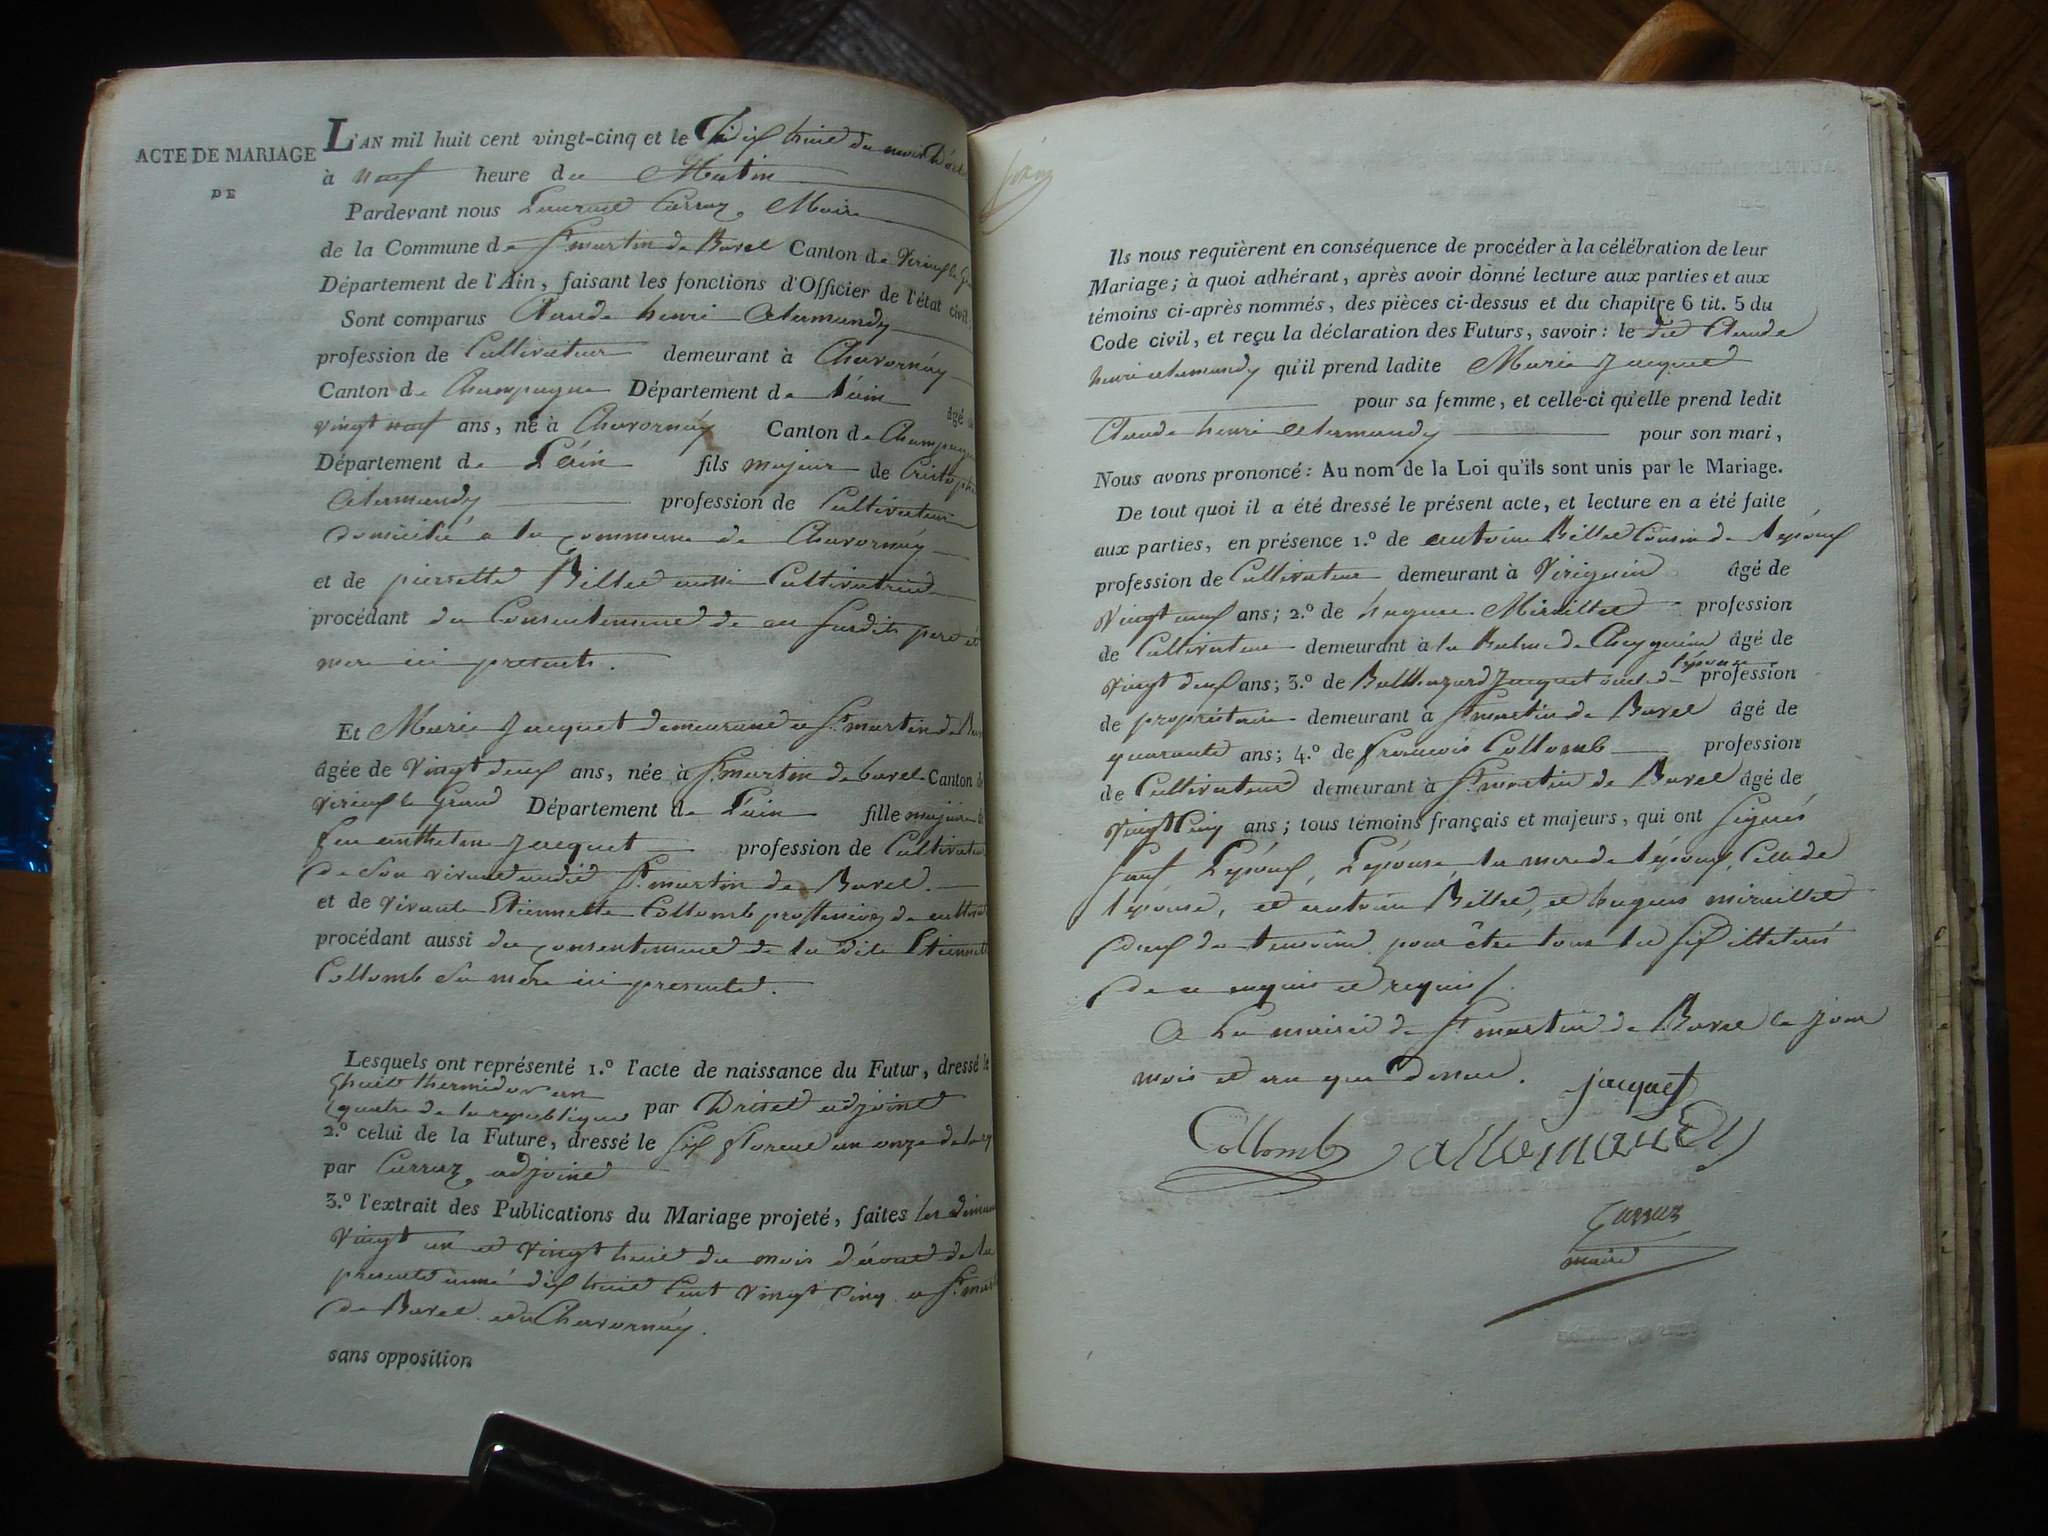 ACTE DE MARIAGE
DE
L'AN mil huit cent vingt-cinq et le dix huit du mois
à neuf heure du Matin
Pardevant nous Carraz Maire
de la Commune de St martin de Bavel Canton de Virieu le
Département de l'Ain, faisant les fonctions d'Officier de l'état civil,
Sont comparus Claude henri Alermandy
profession de Cultivateur demeurant à Chavornáy
Canton de Champagne Département de l'ain âgé de
vingt neuf ans, né à Chavornáy Canton de Champagne
Département de L'Ain fils majeur de Cristophe
Alermandy profession de Cultivateur
domicilié a la commune de Chavornáy
et de pierrette Billet aussi Cultivatrice
procédant du Consentement de au susdits pere et
mere ici presents.
Et Marie Jacquet demeurant a St martin de Bavel
âgée de Vingt deux ans, née à St martin de bavel Canton de
Virieu le Grand Département de L'ain fille majeure de
feu anthelme Jacquet profession de Cultivateur
de son vivant audit St martin de Bavel.
et de vivante Etiennette Collomb proffession de
procédant aussi du consentement de la dite Etiennette
Collomb sa mère ici presente.
Lesquels ont représenté 1.º l'acte de naissance du Futur, dressé le
huit thermidor an
quatre de la republique par Driset adjoint
2.º celui de la Future, dressé le six floreal an onze de la
par Carraz adjoint
3.º l'extrait des Publications du Mariage projeté, faites les
Vingt un et vingt huit du mois d'aout de la
presente année dix huit Cent vingt Cinq a St
de Bavel et a Chavornáy.
sans opposition
Ils nous requièrent en conséquence de procéder à la célébration de leur
Mariage; à quoi adhérant, après avoir donné lecture aux parties et aux
témoins ci-après nommés, des pièces ci-dessus et du chapitre 6 tit. 5 du
Code civil, et reçu la déclaration des Futurs, savoir: le dit Claude
henri alermandy qu'il prend ladite Marie Jacquet
pour sa femme, et celle-ci qu'elle prend ledit
Claude henri Alermandy pour son mari,
Nous avons prononcé: Au nom de la Loi qu'ils sont unis par le Mariage.
De tout quoi il a été dressé le présent acte, et lecture en a été faite
aux parties, en présence 1.º de antoine Billet Cousin de l'epoux
profession de Cultivateur demeurant à Virignin âgé de
Vingt neuf ans; 2.º de hugues Miraillet profession
de Cultivateur demeurant à la Balme de âgé de
vingt deux ans; 3.º de Balthazard Jacquet oncle de l'epouse profession
de propriétaire demeurant à St martin de Bavel âgé de
quarante ans; 4.º de francois Collomb profession
de Cultivateur demeurant à St martin de Bavel âgé de
Vingt Cinq ans; tous témoins français et majeurs, qui ont Signés
sauf L'epoux, L'epouse, la mere de l'epoux, Celle de
l'epouse, et antoine Billet, et hugues miraillet
deux des temoins pour être tous les six illeterés
de ce enquis et requis.
A La mairie de St martin de Bavel le jour
mois et an que dessus. Jacquet
Collomb
Carraz
maire